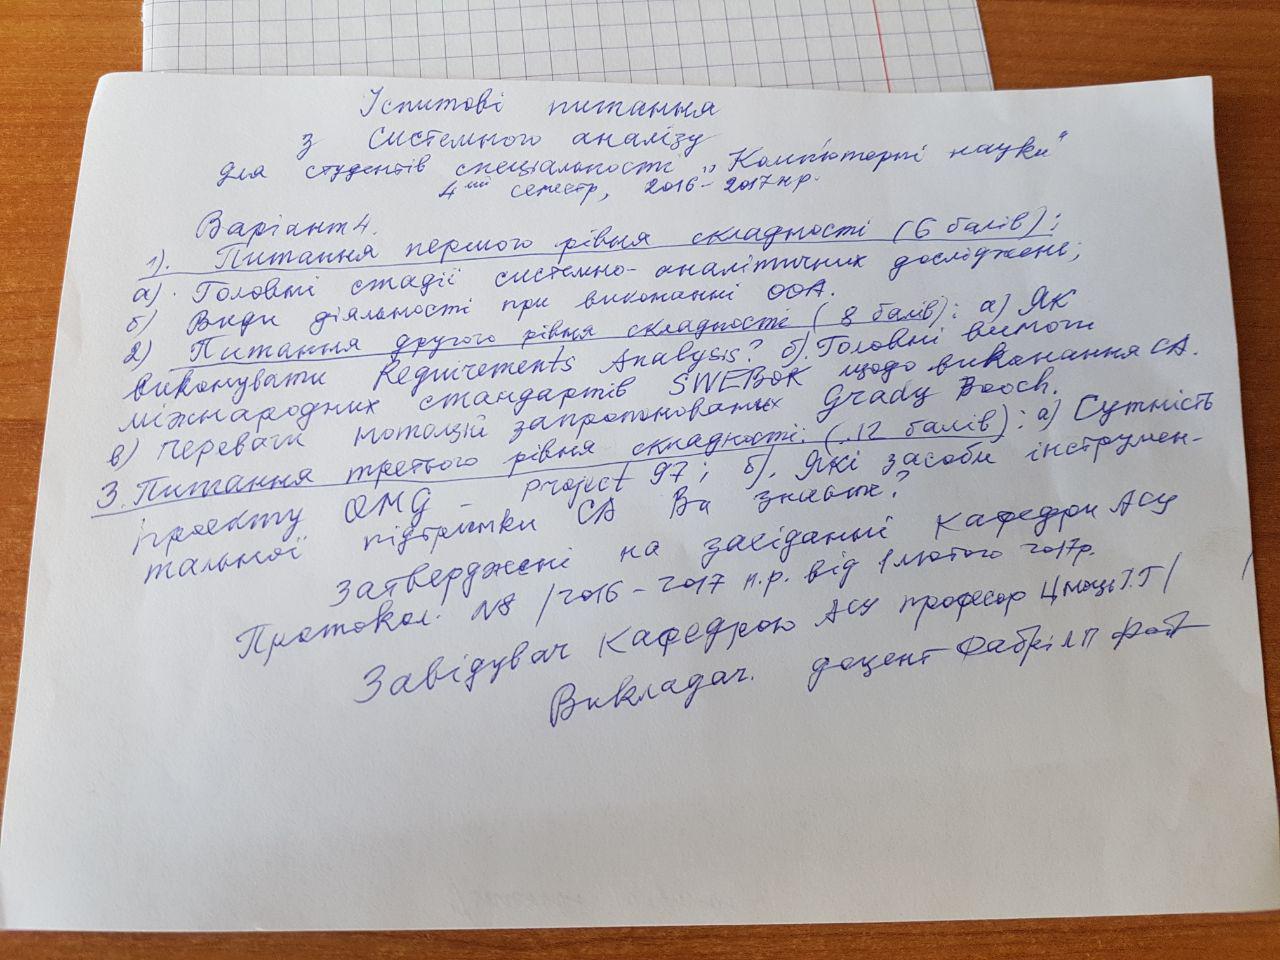 Іспитові питання
з системного аналізу
для студентів спеціальності „Комп'ютерні науки"
4ий семестр, 2016-2017 н.р.
Варіант 4.
1). Питання першого рівня складності (6 балів):
а). Головні стадії системно-аналітичних досліджені;
б) Види діяльності при виконанні ООА.
2) Питання другого рівня складності (8 балів): а) Як
виконувати Requirements Analysis? б). Головні вимоги
міжнародних стандартів SWEBOK щодо виконання СА.
в) Переваги нотацій запропонованих Grady Booch.
3. Питання третього рівня складності. (12 балів): а) Сутність
проекту OMG - project 97; б). Які засоби інструмен-
тальної підтримки СА Ви знаєте?
Затверджені на засіданні Кафедри АСУ
Протокол. №8 /2016-2017 н.р. від 1 лютого 2017р.
Завідувач Кафедрою АСУ професор Цмоць І.Г /
Викладач. доцент Фабрі Л П